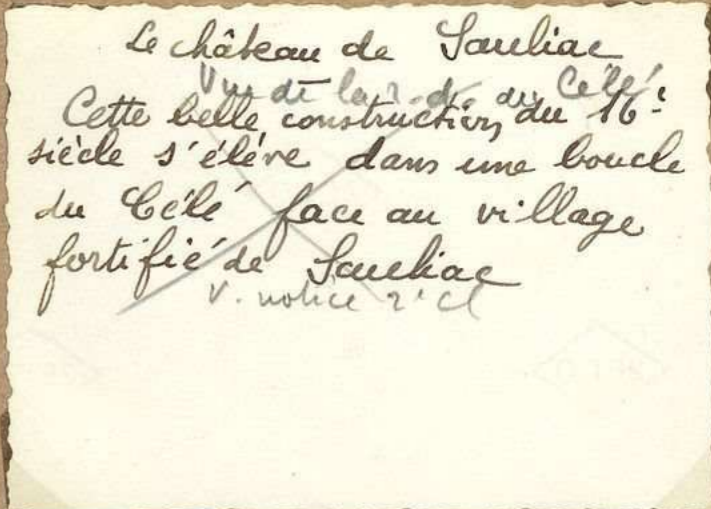 Le château de Sauliac
Vue de du Célé
Cette belle construction du 16e
siècle s'élève dans une boucle
du Célé face au village
fortifié de Sauliac
V. notice 2e cl